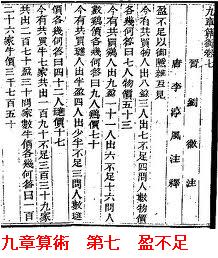 九章算術卷七
晉 劉徽 注
唐 李淳風 注釋
盈不足以御隱雜互見
今有共買物人出八盈三人出七不足四問人數物價
各幾何答曰七人物價五十三
今有共買雞人出九盈十一人出六不足十六問人
數雞價各幾何答曰九人雞價七十
今有共買璡人出半盈四人出少半不足三問人數璡
價各幾何答曰四十二人璡價十七
今有共買牛七家共出一百九十不足三百三十九家
共出二百七十盈三十問家數牛價各幾何答曰一百
二十六家牛價三千七百五十
九章算術 第七 盈不足